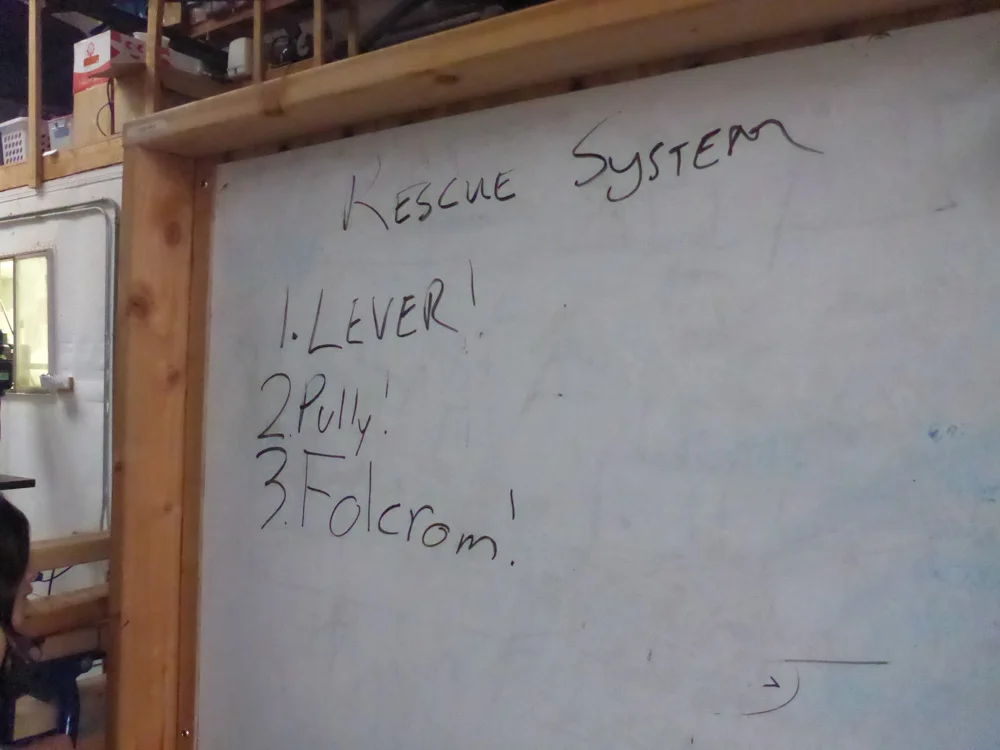 RESCUE SYSTEM
1. LEVER!
2. Pully!
3. Folcrom!